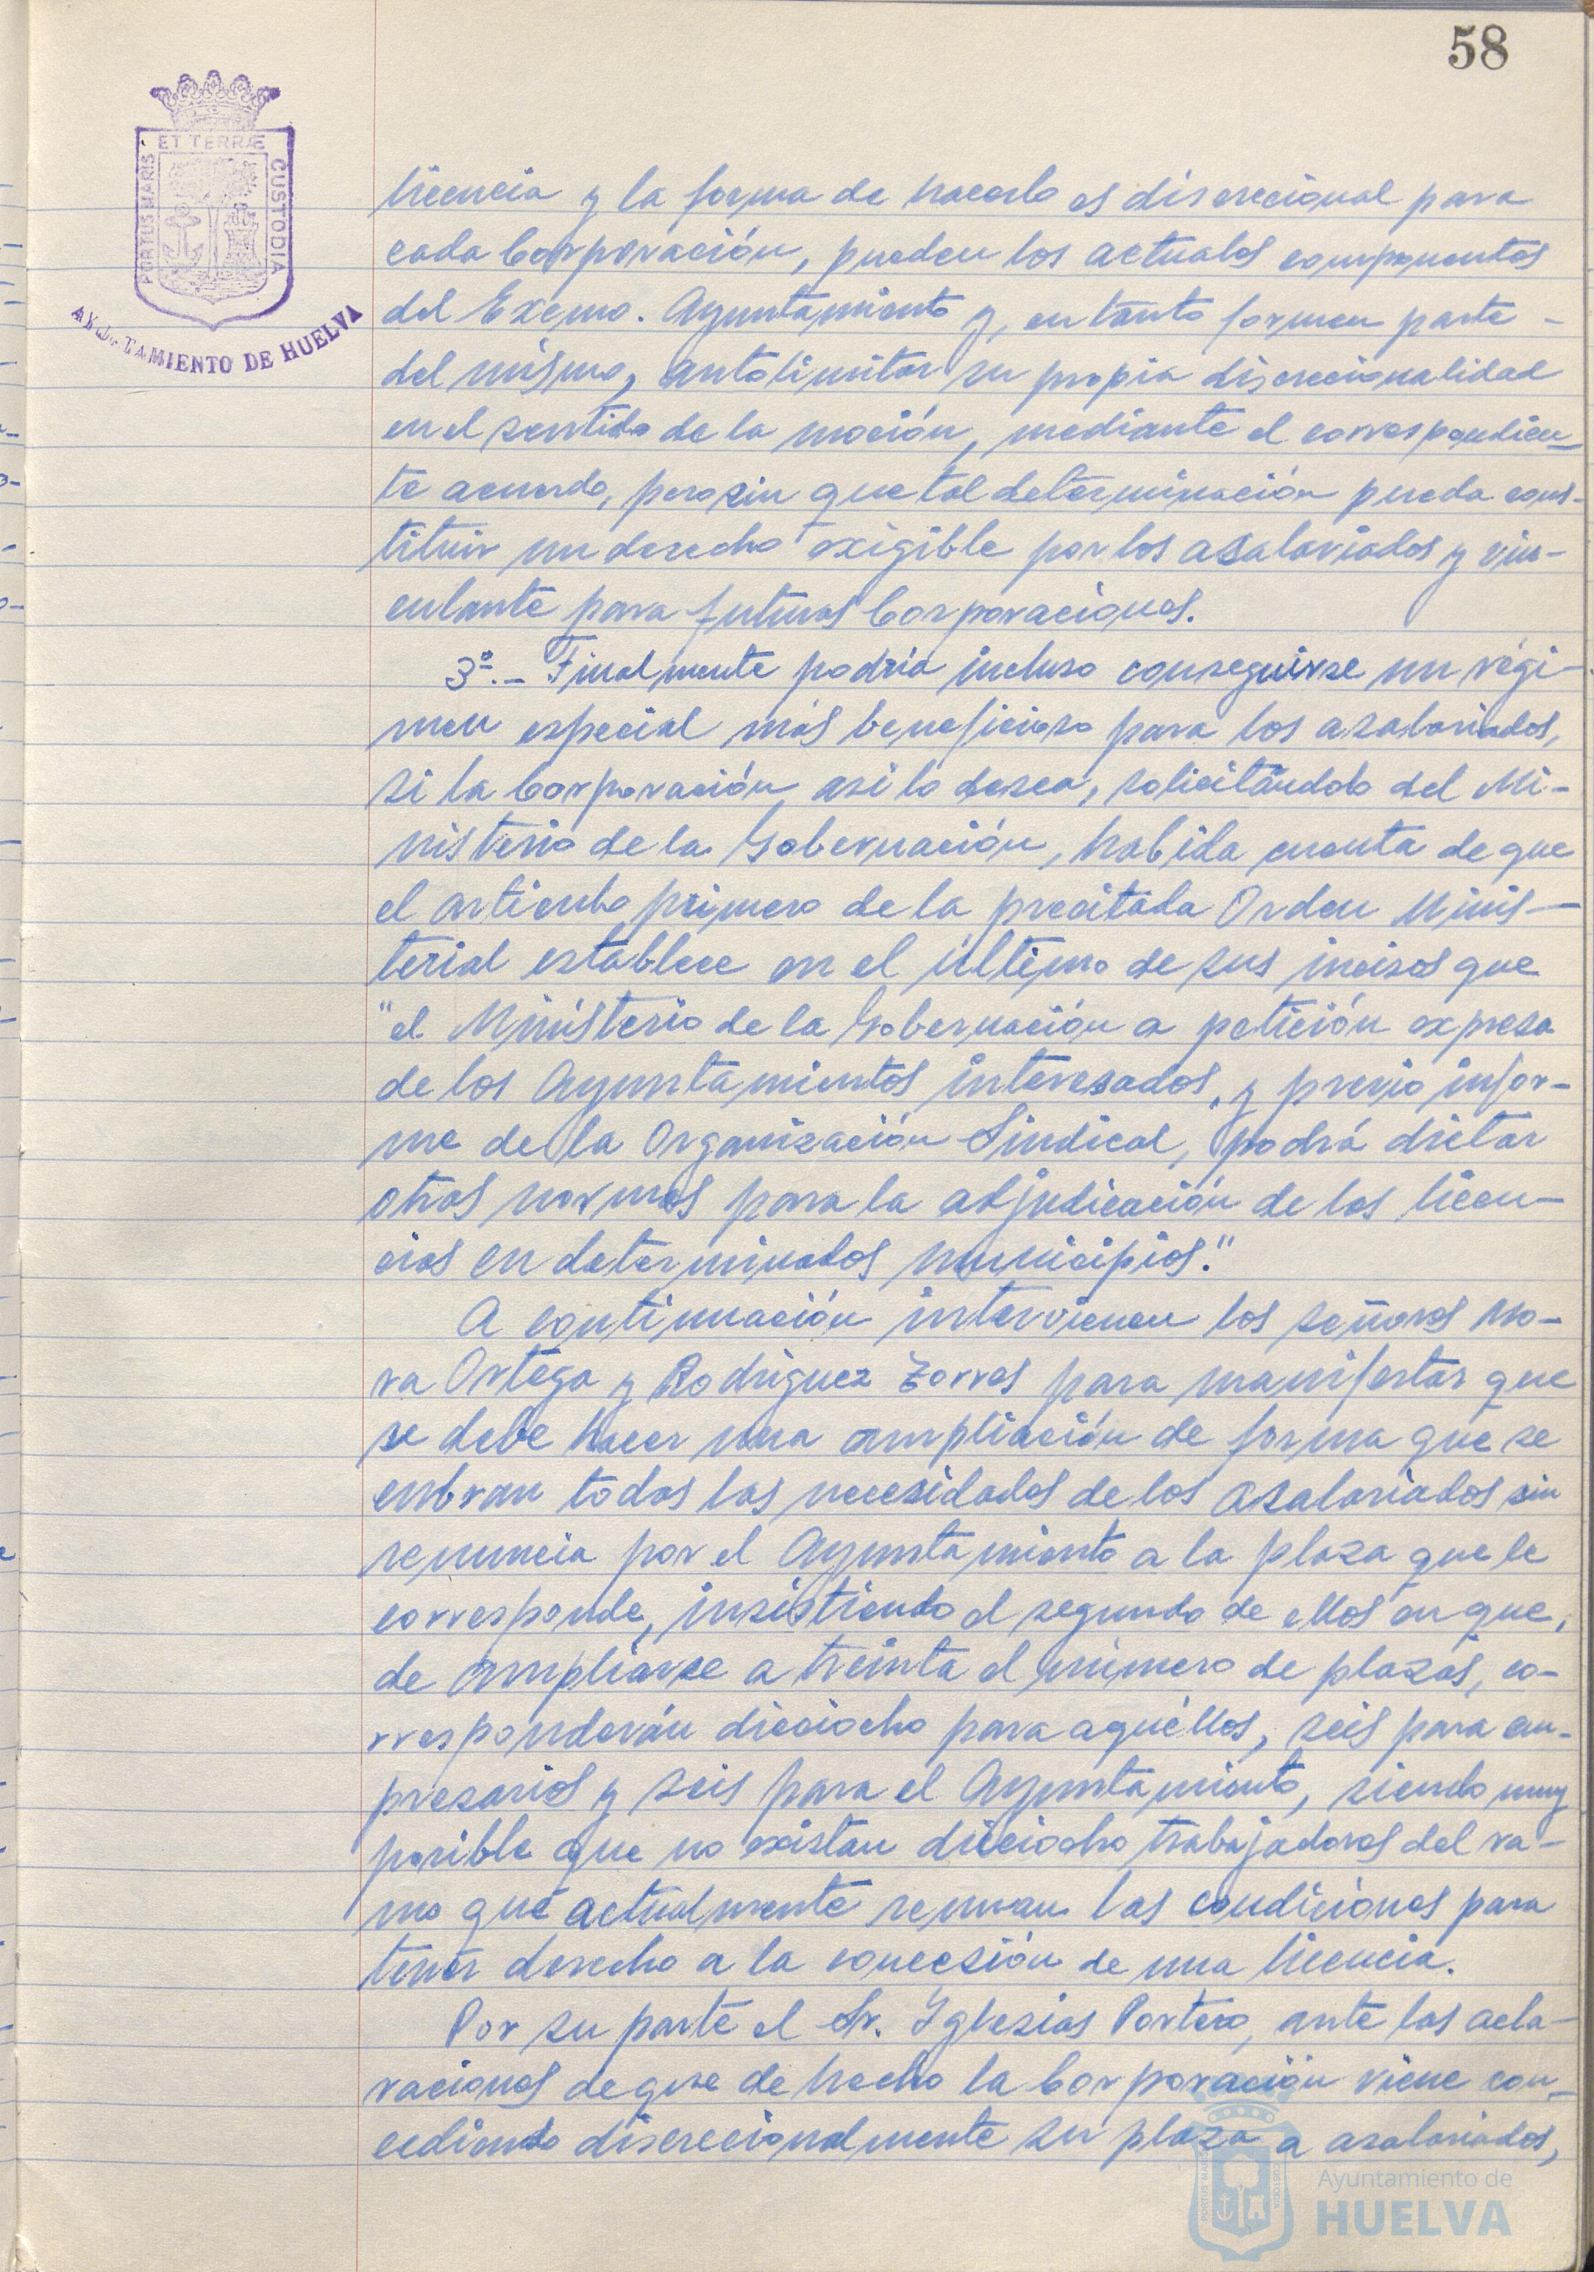 58
ET TERRÆ
PORTUS MARIS
CUSTODIA
AYUNTAMIENTO DE HUELVA
licencia y la forma de hacerlo es discrecional para
cada Corporación, pueden los actuales componentes
del Excmo. Ayuntamiento y, en tanto formen parte -
del mismo, autolimitar su propia discrecionalidad
en el sentido de la moción, mediante el correspondien-
te acuerdo, pero sin que tal determinación pueda cons-
tituir un derecho exigible por los asalariados y vin-
culante para futuras Corporaciones.
3º.- Finalmente podría incluso conseguirse un régi-
men especial más beneficioso para los asalariados,
si la Corporación así lo desea, solicitándolo del Mi-
nisterio de la Gobernación, habida cuenta de que
el artículo primero de la precitada Orden Minis-
terial establece en el último de sus incisos que
"el Ministerio de la Gobernación a petición expresa
de los Ayuntamientos interesados, y previo infor-
me de la Organización Sindical, podrá dictar
otras normas para la adjudicación de las licen-
cias en determinados municipios."
A continuación intervienen los señores Mo-
ra Ortega y Rodríguez Torres para manifestar que
se debe hacer una ampliación de forma que se
cubran todas las necesidades de los asalariados sin
renuncia por el Ayuntamiento a la plaza que le
corresponde, insistiendo el segundo de ellos en que,
de ampliarse a treinta el número de plazas, co-
rresponderán dieciocho para aquéllos, seis para em-
presarios y seis para el Ayuntamiento, siendo muy
posible que no existan dieciocho trabajadores del ra-
mo que actualmente reunan las condiciones para
tener derecho a la concesión de una licencia.
Por su parte el Sr. Iglesias Portero, ante las acla-
raciones de que de hecho la Corporación viene con-
cediendo discrecionalmente su plaza a asalariados,
Ayuntamiento de
HUELVA